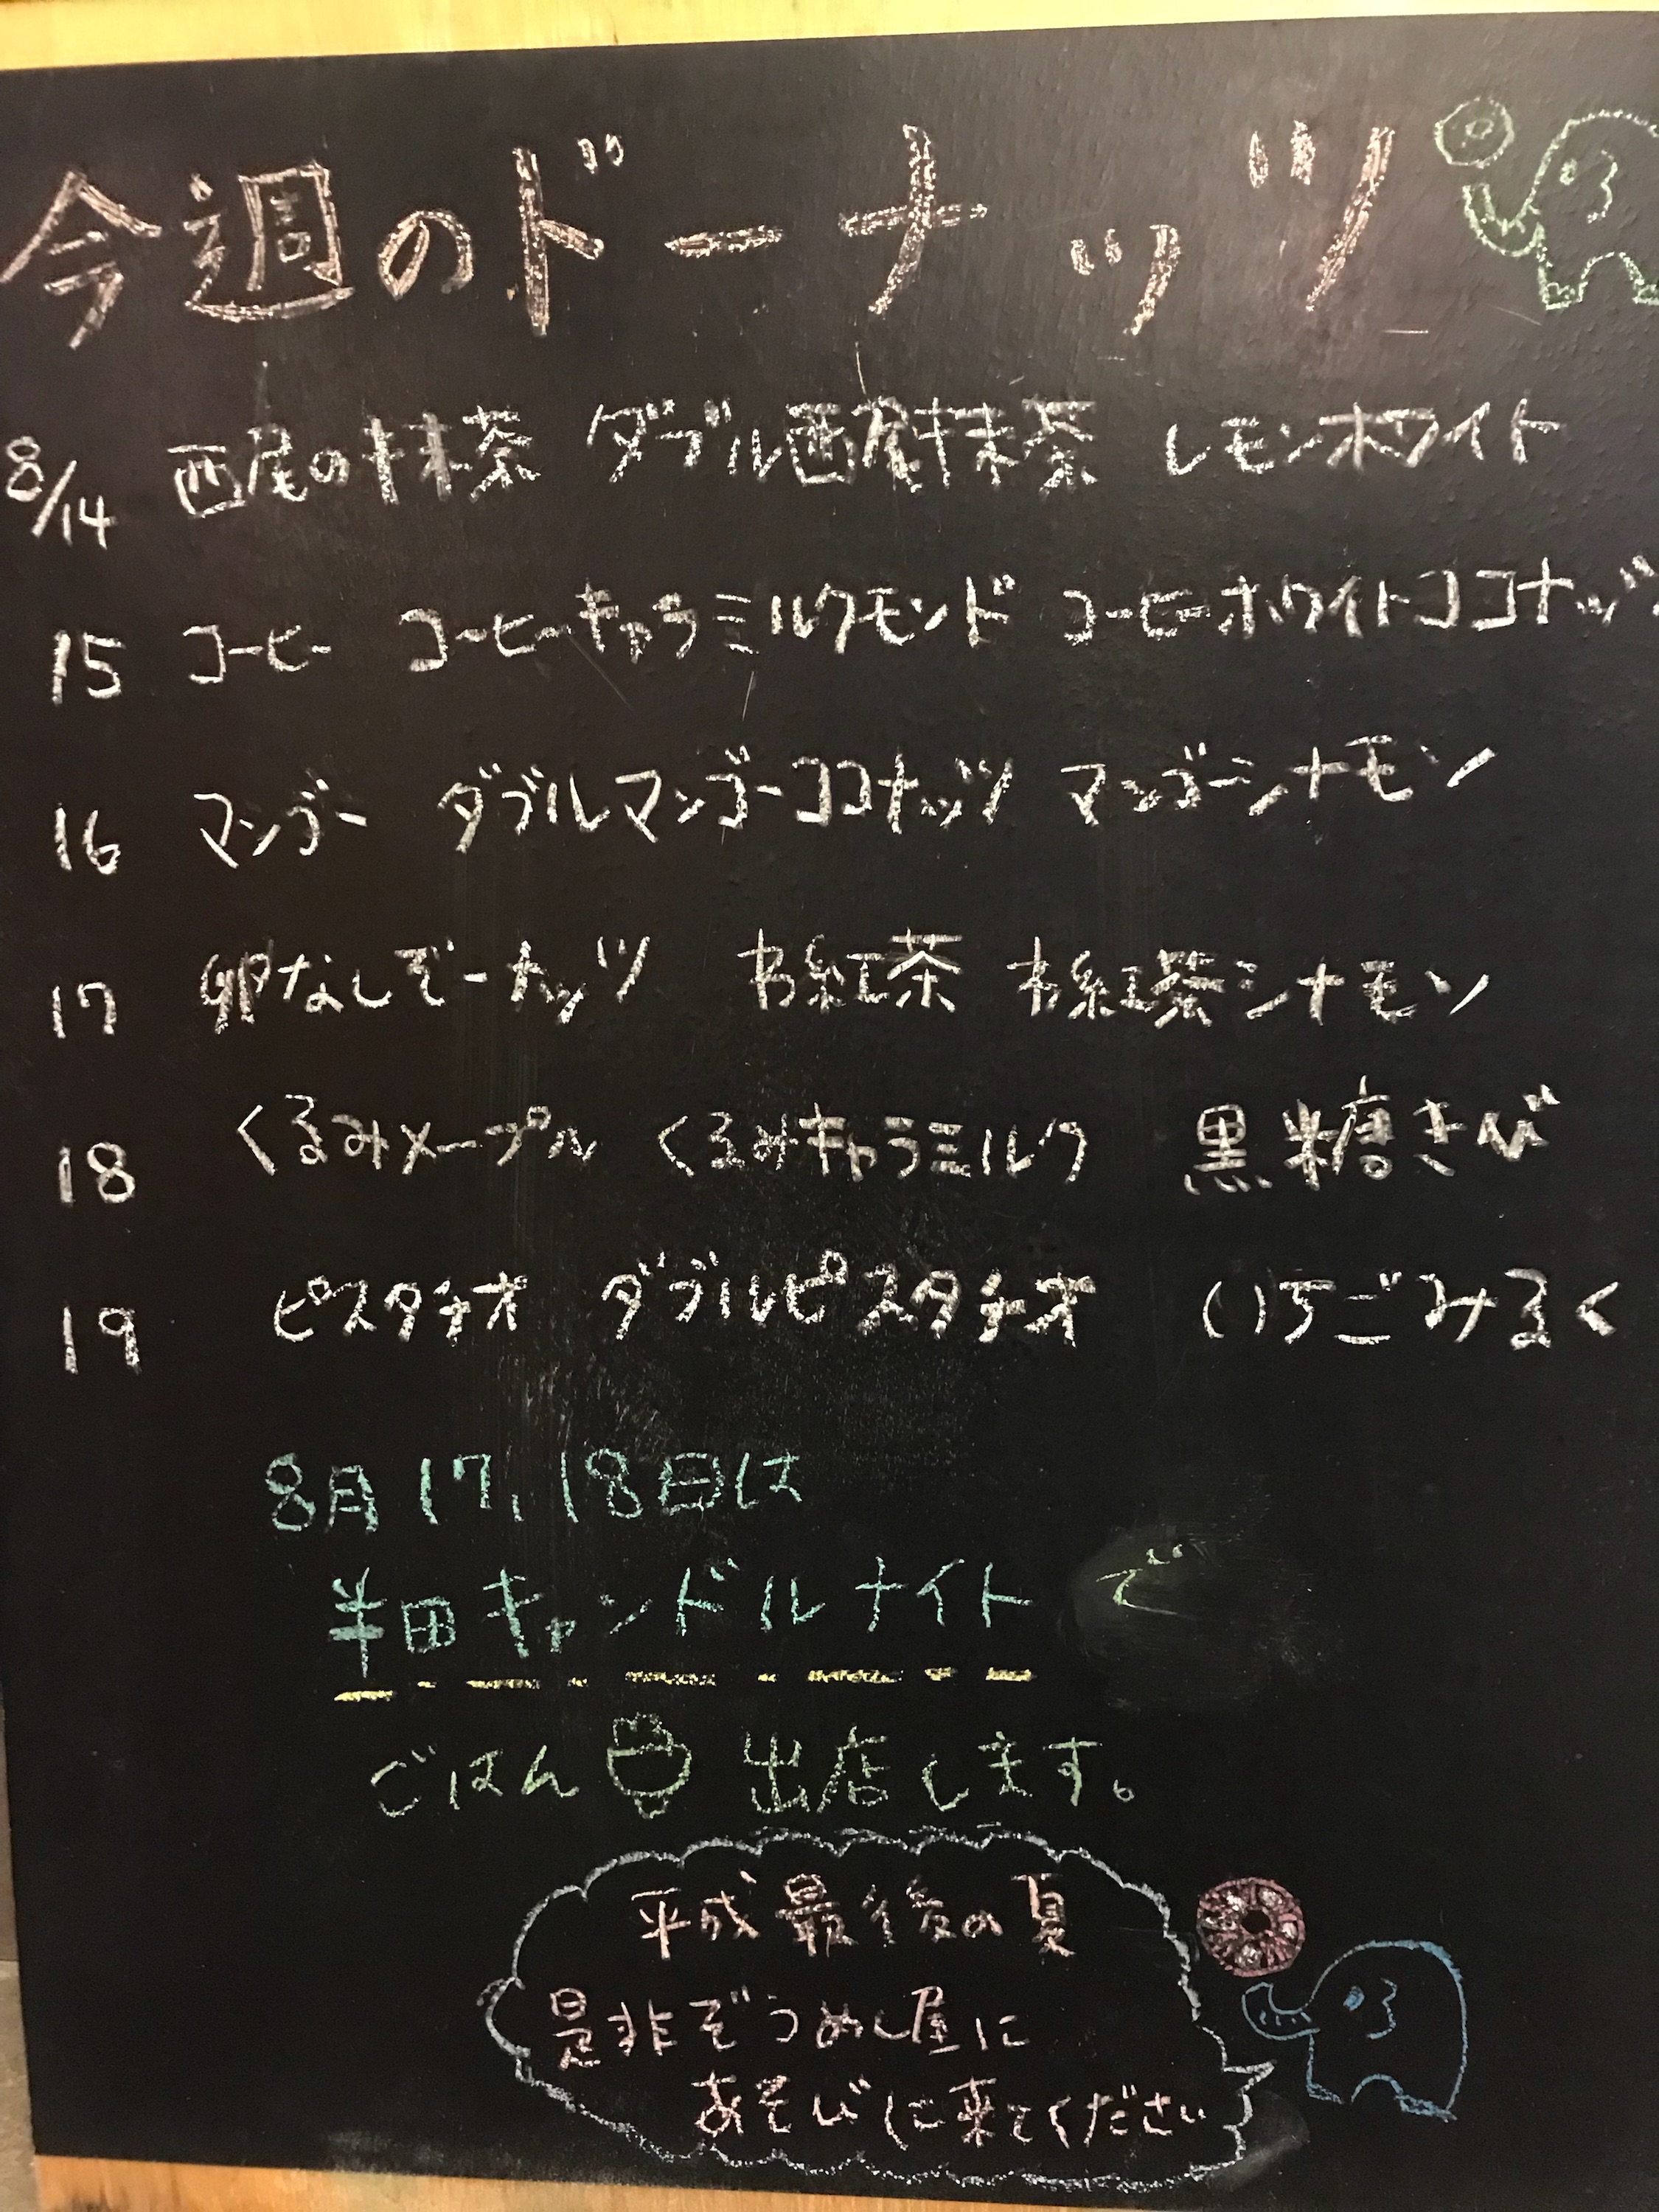 今週のドーナッツ
8/14 西尾の抹茶 ダブル西尾抹茶 レモンホワイト
15 コーヒー コーヒーキャラミルクモンド コーヒーホワイトココナッツ
16 マンゴー ダブルマンゴーココナッツ マンゴーシナモン
17 卵なしぞーナッツ お紅茶 お紅茶シナモン
18 くるみメープル くるみキャラミルク 黒糖きび
19 ピスタチオ ダブルピスタチオ いちごみるく
8月17,18日は
半田キャンドルナイトで
ごはん 出店します。
平成最後の夏
是非ぞうめし屋に
あそびに来てください